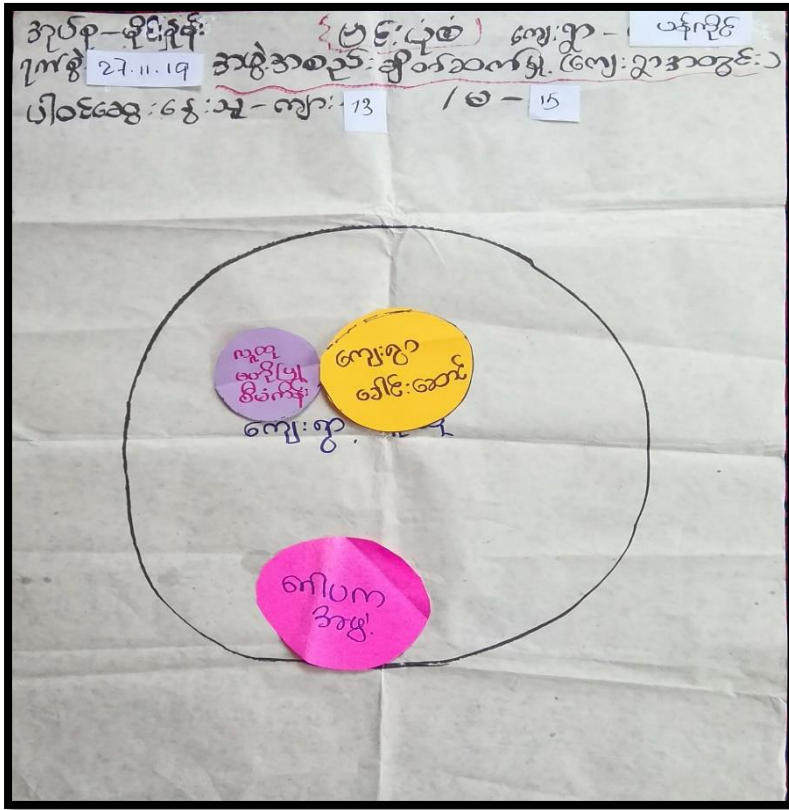 အုပ်စု-မိုင်းနွန်း {ဗင်းပုံစံ} ကျေးရွာ- ပန်ကိုင်
ရက်စွဲ 27.11.19 အဖွဲ့အစည်းချိတ်ဆက်မှု (ကျေးရွာအတွင်း)
ပါဝင်ဆွေးနွေးသူ-ကျား- 13 /မ- 15
လူထု
စီမံကိန်း
ကျေးရွာ
ခေါင်းဆောင်
ကျေးရွာ
အဖွဲ့